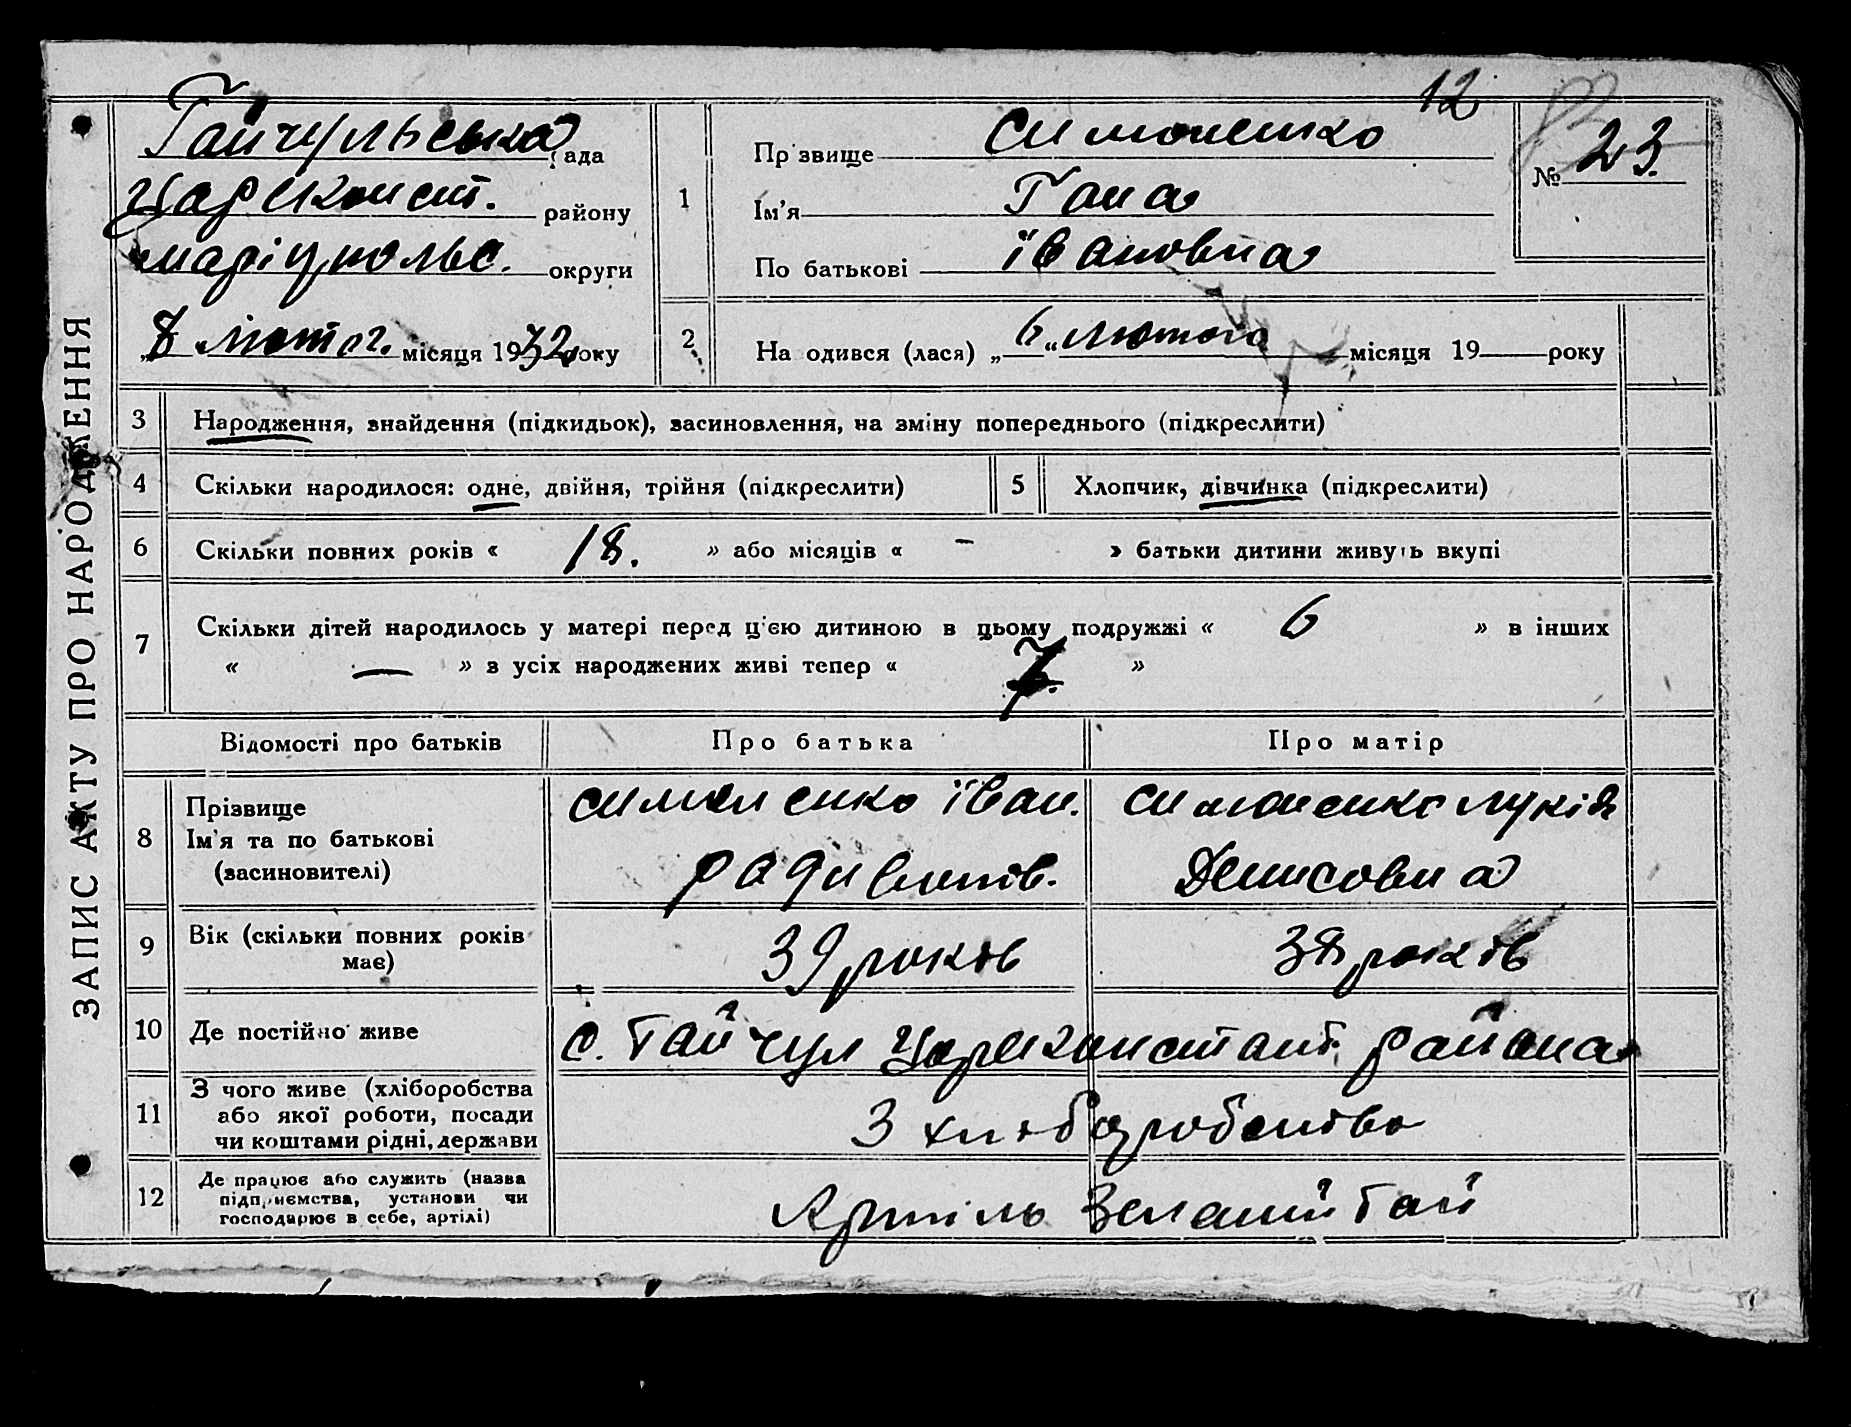 12
Гайчульська рада
Царекконст. району
маріупольс. округи
„8 „лютог. місяця 1932 року
1
Прізвище Симоненко
Ім'я Гана
По батькові Івановна
№ 23.
2
На одився (лася) „6 „лютого місяця 19 року
ЗАПИС АКТУ ПРО НАРОДЖЕННЯ
3 Народження, знайдення (підкидьок), засиновлення, на зміну попереднього (підкреслити)
4 Скільки народилося: одне, двійня, трійня (підкреслити) 5 Хлопчик, дівчинка (підкреслити)
6 Скільки повних років « 18. » або місяців « – » батьки дитини живуть вкупі
7 Скільки дітей народилось у матері перед цією дитиною в цьому подружжі « 6 » в інших
« — » з усіх народжених живі тепер « 7. »
Відомості про батьків Про батька Про матір
8 Прізвище
Ім'я та по батькові
(засиновителі)
симоненко Іван.
радивонів.
симоненко лукія
Денисовна
9 Вік (скільки повних років
має)
39 років 38 років
10 Де постійно живе с. Гайчул Царекконстант. района
11 З чого живе (хліборобства
або якої роботи, посади
чи коштами рідні, держави
З хліборобства
12 Де працює або служить (назва
підприємства, установи чи
господарює в себе, артілі)
Артіль Зелений Гай